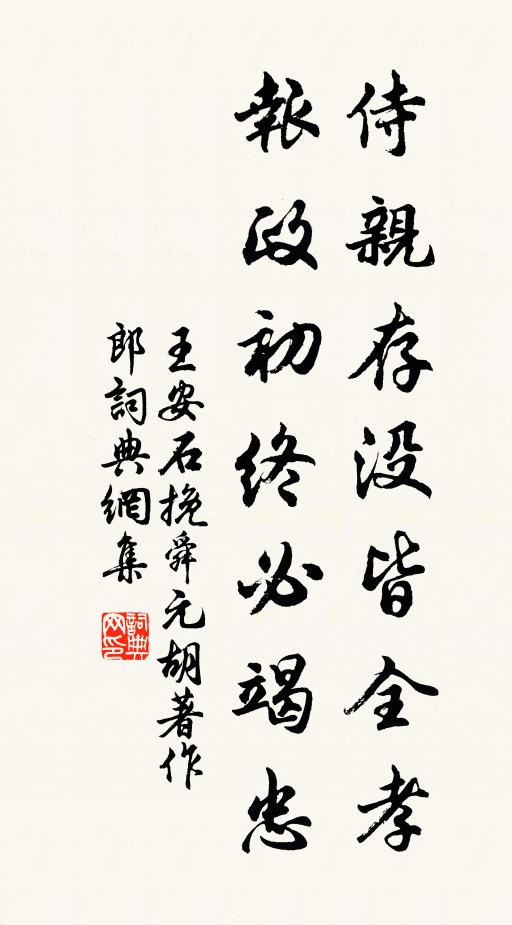 侍親存没皆全孝
報政初終必竭忠
王安石挽舜元胡著作
郎詞典網集
詞典网印